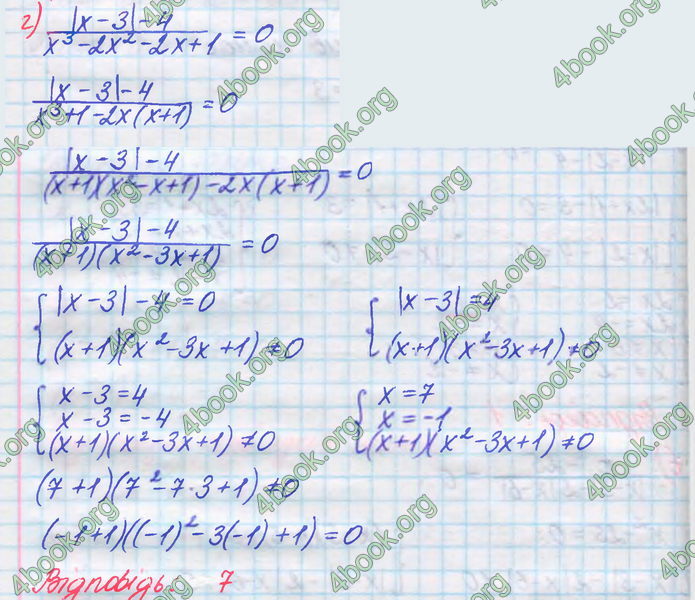 г) |x - 3| - 4 / x³ - 2x² - 2x + 1 = 0
|x - 3| - 4 / x³ + 1 - 2x(x+1) = 0
|x - 3| - 4 / (x+1)(x² - x + 1) - 2x(x+1) = 0
|x - 3| - 4 / (x+1)(x² - 3x + 1) = 0
{ |x - 3| - 4 = 0
(x+1)(x² - 3x + 1) ≠ 0
{ |x - 3| = 4
(x+1)(x² - 3x + 1) ≠ 0
{ x - 3 = 4
x - 3 = -4
(x+1)(x² - 3x + 1) ≠ 0
{ x = 7
x = -1
(x+1)(x² - 3x + 1) ≠ 0
(7 + 1)(7² - 7·3 + 1) ≠ 0
(-1 + 1)((-1)² - 3(-1) + 1) = 0
Відповідь. 7
4book.org